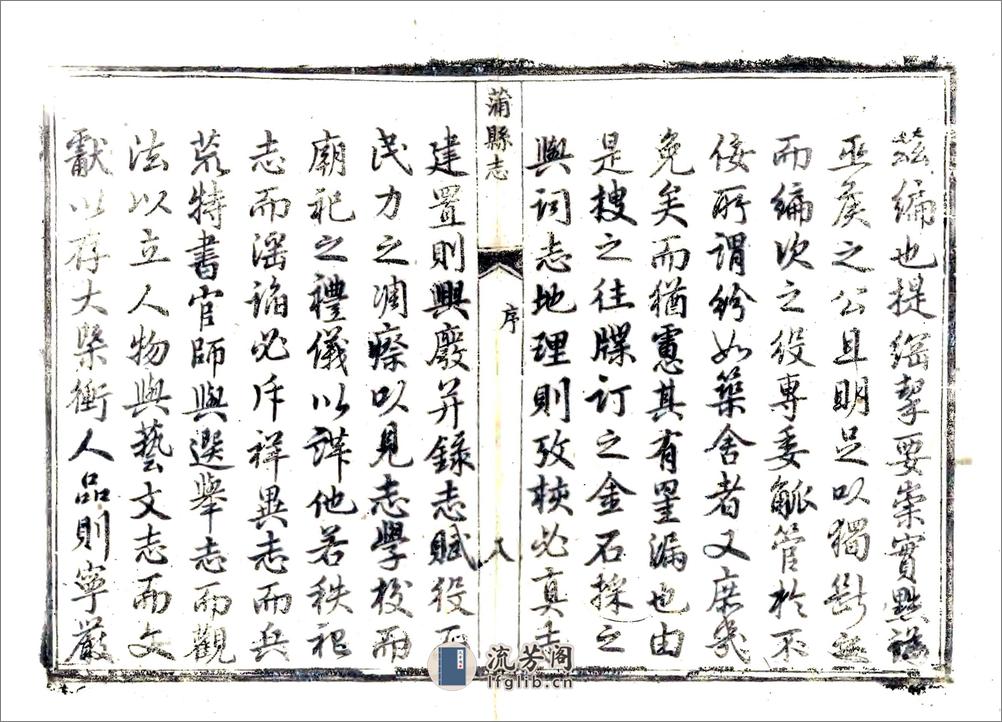 茲編也提綱挈要崇實黜誣
巫矦之公且明足以獨斷之
而編次之役專委觚管於不
佞所謂紛如築舍者又庶幾
免矣而猶慮其有罣漏也由
是搜之往牒訂之金石採之
輿詞志地理則攷核必真志
蒲縣志
序
八
建置則興廢并錄志賦役而
民力之凋瘵以見志學校而
廟祀之禮儀以詳他若秩祀
志而滛諂必斥祥異志而兵
荒特書官師與選舉志而觀
法以立人物與藝文志而文
獻以存大槩衡人品則寧嚴
流芳阁
lfglib.cn